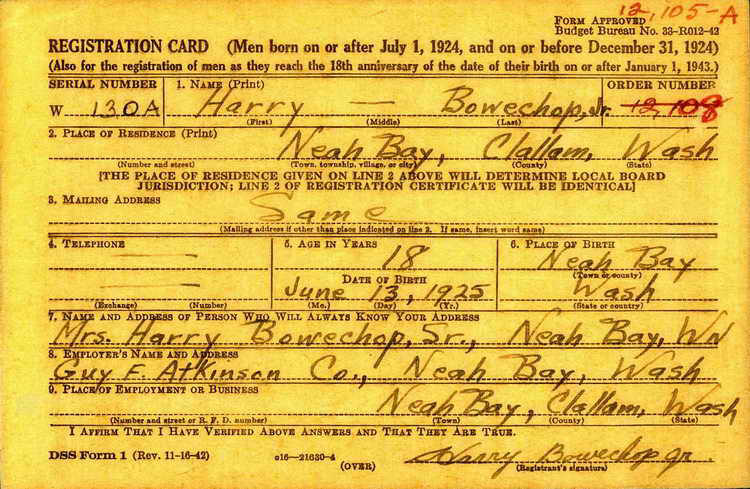 12,105-A
FORM APPROVED
Budget Bureau No. 33-R012-42
REGISTRATION CARD (Men born on or after July 1, 1924, and on or before December 31, 1924)
(Also for the registration of men as they reach the 18th anniversary of the date of their birth on or after January 1, 1943.)
SERIAL NUMBER 1. NAME (Print) ORDER NUMBER
W 130A Harry — Bowechop, Jr. 12,108
(First) (Middle) (Last)
2. PLACE OF RESIDENCE (Print)
Neah Bay, Clallam, Wash
(Number and street) (Town, township, village, or city) (County) (State)
[THE PLACE OF RESIDENCE GIVEN ON LINE 2 ABOVE WILL DETERMINE LOCAL BOARD
JURISDICTION; LINE 2 OF REGISTRATION CERTIFICATE WILL BE IDENTICAL]
3. MAILING ADDRESS
Same
(Mailing address if other than place indicated on line 2. If same, insert word same)
4. TELEPHONE 5. AGE IN YEARS 6. PLACE OF BIRTH
— 18 Neah Bay
DATE OF BIRTH (Town or county)
— June 13, 1925 Wash
(Exchange) (Number) (Mo.) (Day) (Yr.) (State or country)
7. NAME AND ADDRESS OF PERSON WHO WILL ALWAYS KNOW YOUR ADDRESS
Mrs. Harry Bowechop, Sr., Neah Bay, WN
8. EMPLOYER'S NAME AND ADDRESS
Guy F. Atkinson Co., Neah Bay, Wash
9. PLACE OF EMPLOYMENT OR BUSINESS
Neah Bay, Clallam, Wash
(Number and street or R. F. D. number) (Town) (County) (State)
I AFFIRM THAT I HAVE VERIFIED ABOVE ANSWERS AND THAT THEY ARE TRUE.
DSS Form 1 (Rev. 11-16-42) c16—21630-4 Harry Bowechop Jr.
(OVER) (Registrant's signature)